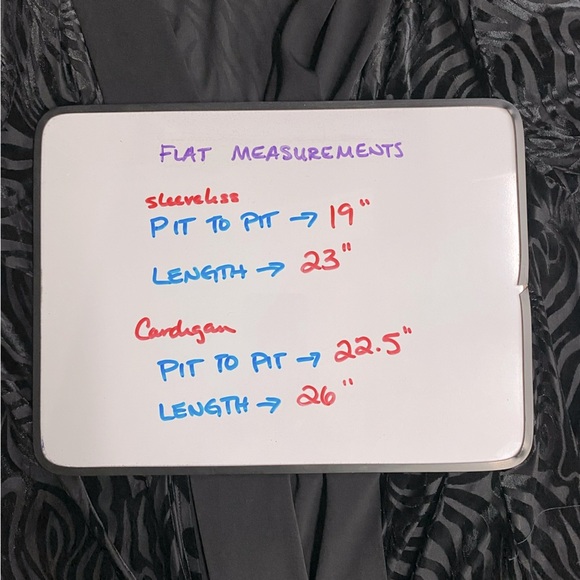 FLAT MEASUREMENTS
sleeveless
PIT TO PIT → 19"
LENGTH → 23"
Cardigan
PIT TO PIT → 22.5"
LENGTH → 26"